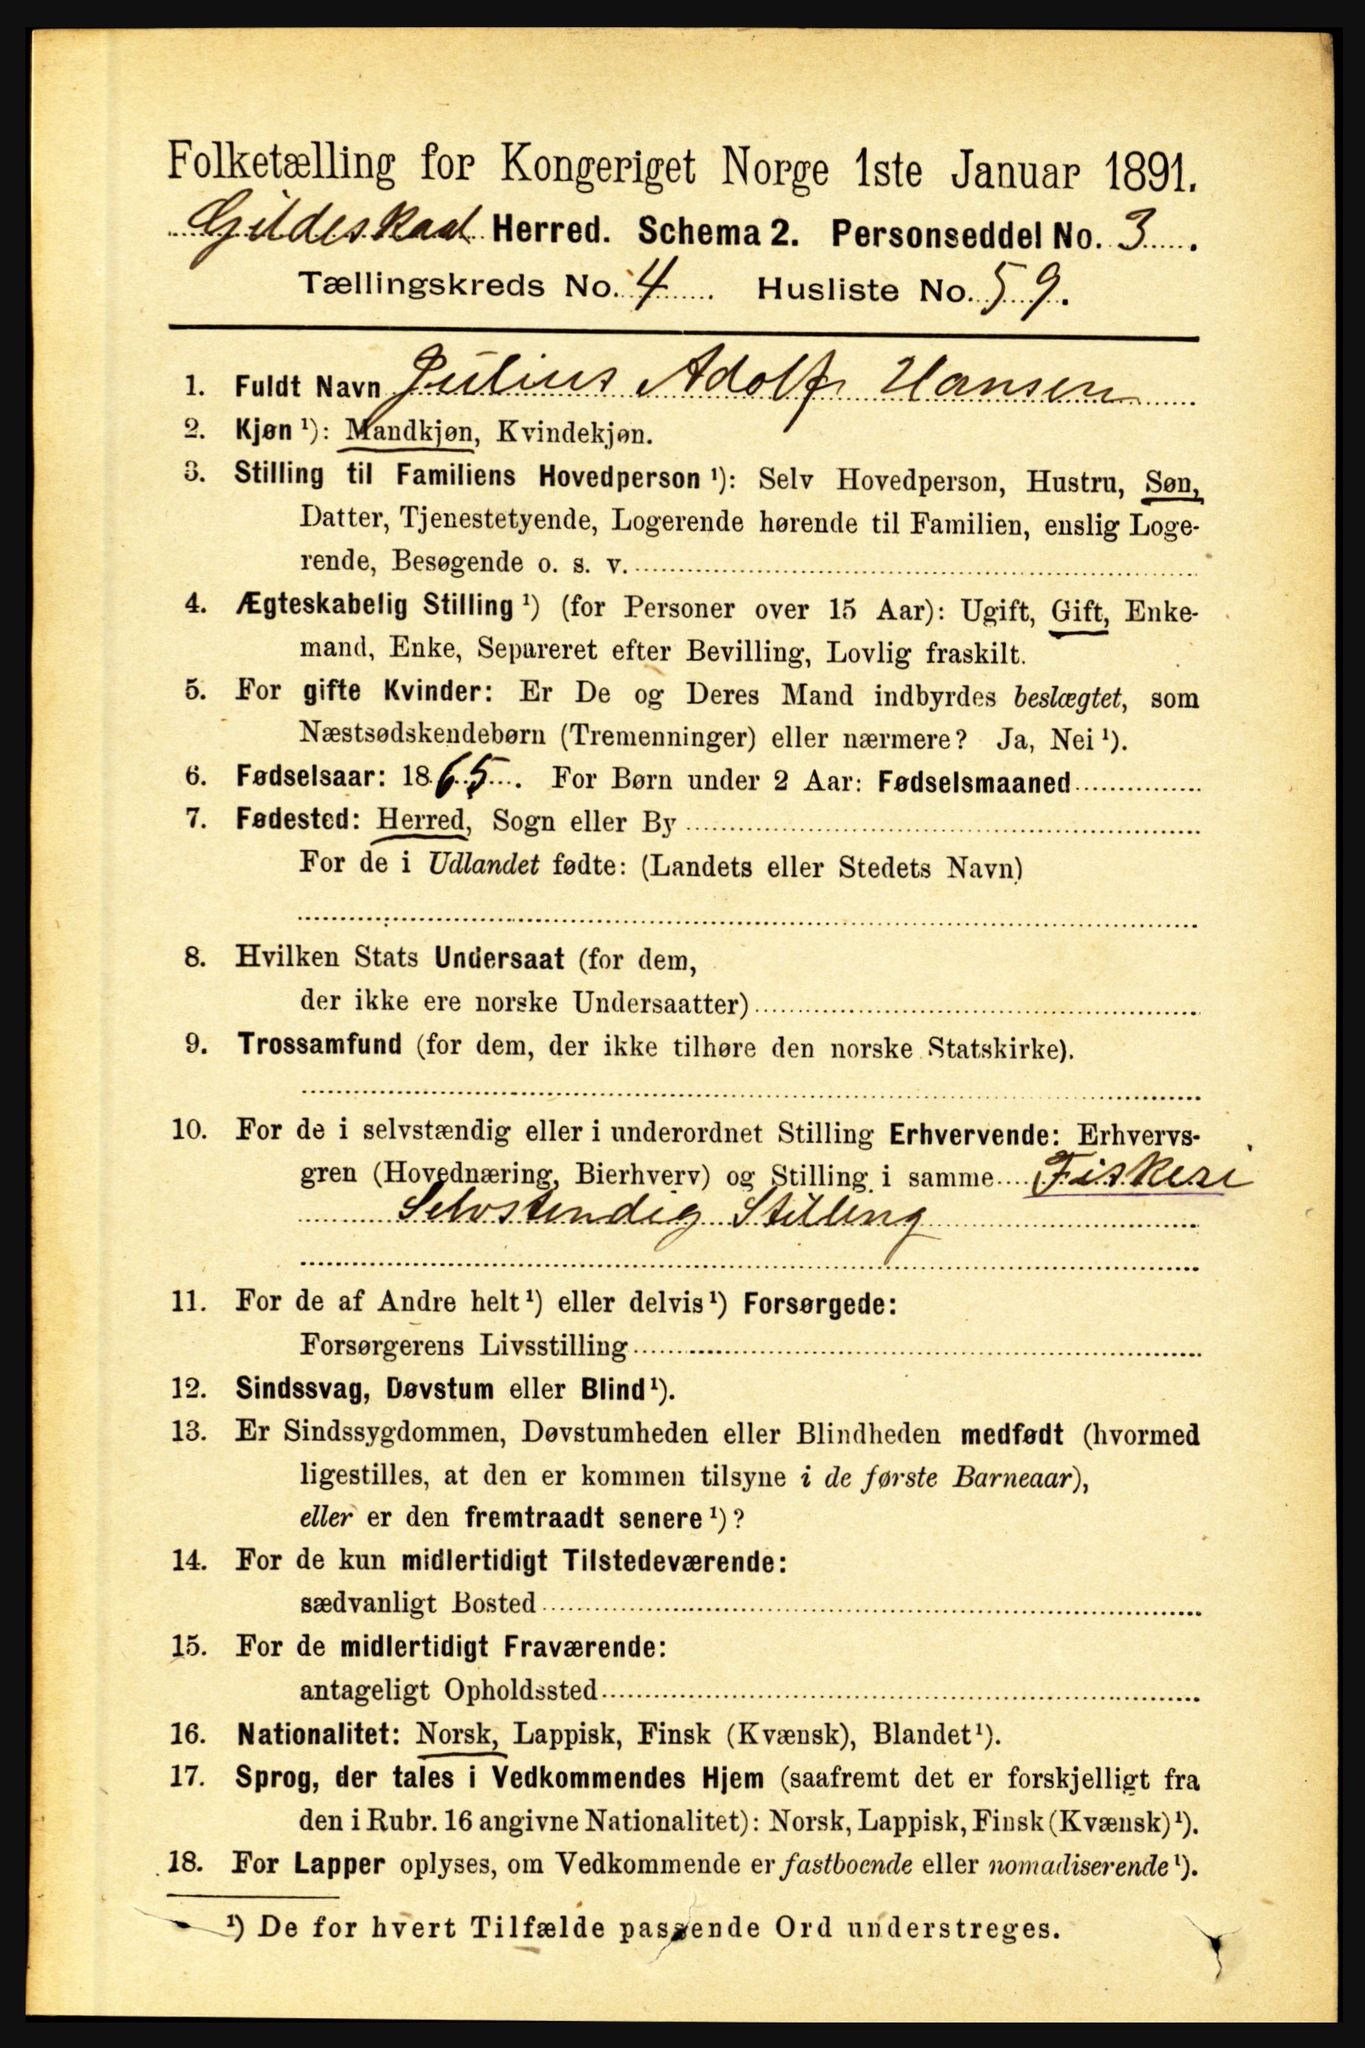 Folketælling for Kongeriget Norge 1ste Januar 1891.
Gildeskaal Herred. Schema 2. Personseddel No. 3.
Tællingskreds No. 4. Husliste No. 59.
1. Fuldt Navn Julius Adolf Hansen
2. Kjøn ¹): Mandkjøn, Kvindekjøn.
3. Stilling til Familiens Hovedperson ¹): Selv Hovedperson, Hustru, Søn,
Datter, Tjenestetyende, Logerende hørende til Familien, enslig Loge-
rende, Besøgende o. s. v.
4. Ægteskabelig Stilling ¹) (for Personer over 15 Aar): Ugift, Gift, Enke-
mand, Enke, Separeret efter Bevilling, Lovlig fraskilt.
5. For gifte Kvinder: Er De og Deres Mand indbyrdes beslægtet, som
Næstsødskendebørn (Tremenninger) eller nærmere? Ja, Nei ¹).
6. Fødselsaar: 1865. For Børn under 2 Aar: Fødselsmaaned
7. Fødested: Herred, Sogn eller By
For de i Udlandet fødte: (Landets eller Stedets Navn)
8. Hvilken Stats Undersaat (for dem,
der ikke ere norske Undersaatter)
9. Trossamfund (for dem, der ikke tilhøre den norske Statskirke).
10. For de i selvstændig eller i underordnet Stilling Erhvervende: Erhvervs-
gren (Hovednæring, Bierhverv) og Stilling i samme Fiskeri
Selvstendig Stilling
11. For de af Andre helt ¹) eller delvis ¹) Forsørgede:
Forsørgerens Livsstilling
12. Sindssvag, Døvstum eller Blind ¹).
13. Er Sindssygdommen, Døvstumheden eller Blindheden medfødt (hvormed
ligestilles, at den er kommen tilsyne i de første Barneaar),
eller er den fremtraadt senere ¹)?
14. For de kun midlertidigt Tilstedeværende:
sædvanligt Bosted
15. For de midlertidigt Fraværende:
antageligt Opholdssted
16. Nationalitet: Norsk, Lappisk, Finsk (Kvænsk), Blandet ¹).
17. Sprog, der tales i Vedkommendes Hjem (saafremt det er forskjelligt fra
den i Rubr. 16 angivne Nationalitet): Norsk, Lappisk, Finsk (Kvænsk) ¹).
18. For Lapper oplyses, om Vedkommende er fastboende eller nomadiserende ¹).
¹) De for hvert Tilfælde passende Ord understreges.